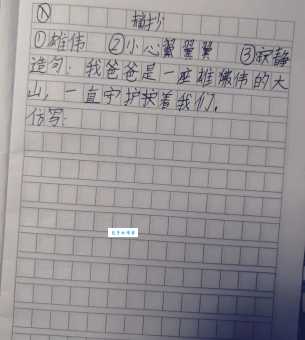 摘抄
①雄伟 ②小心翼翼翼 ③寂静
造句：我爸爸是一座雄伟的大
山，一直守护着我们。
仿写：